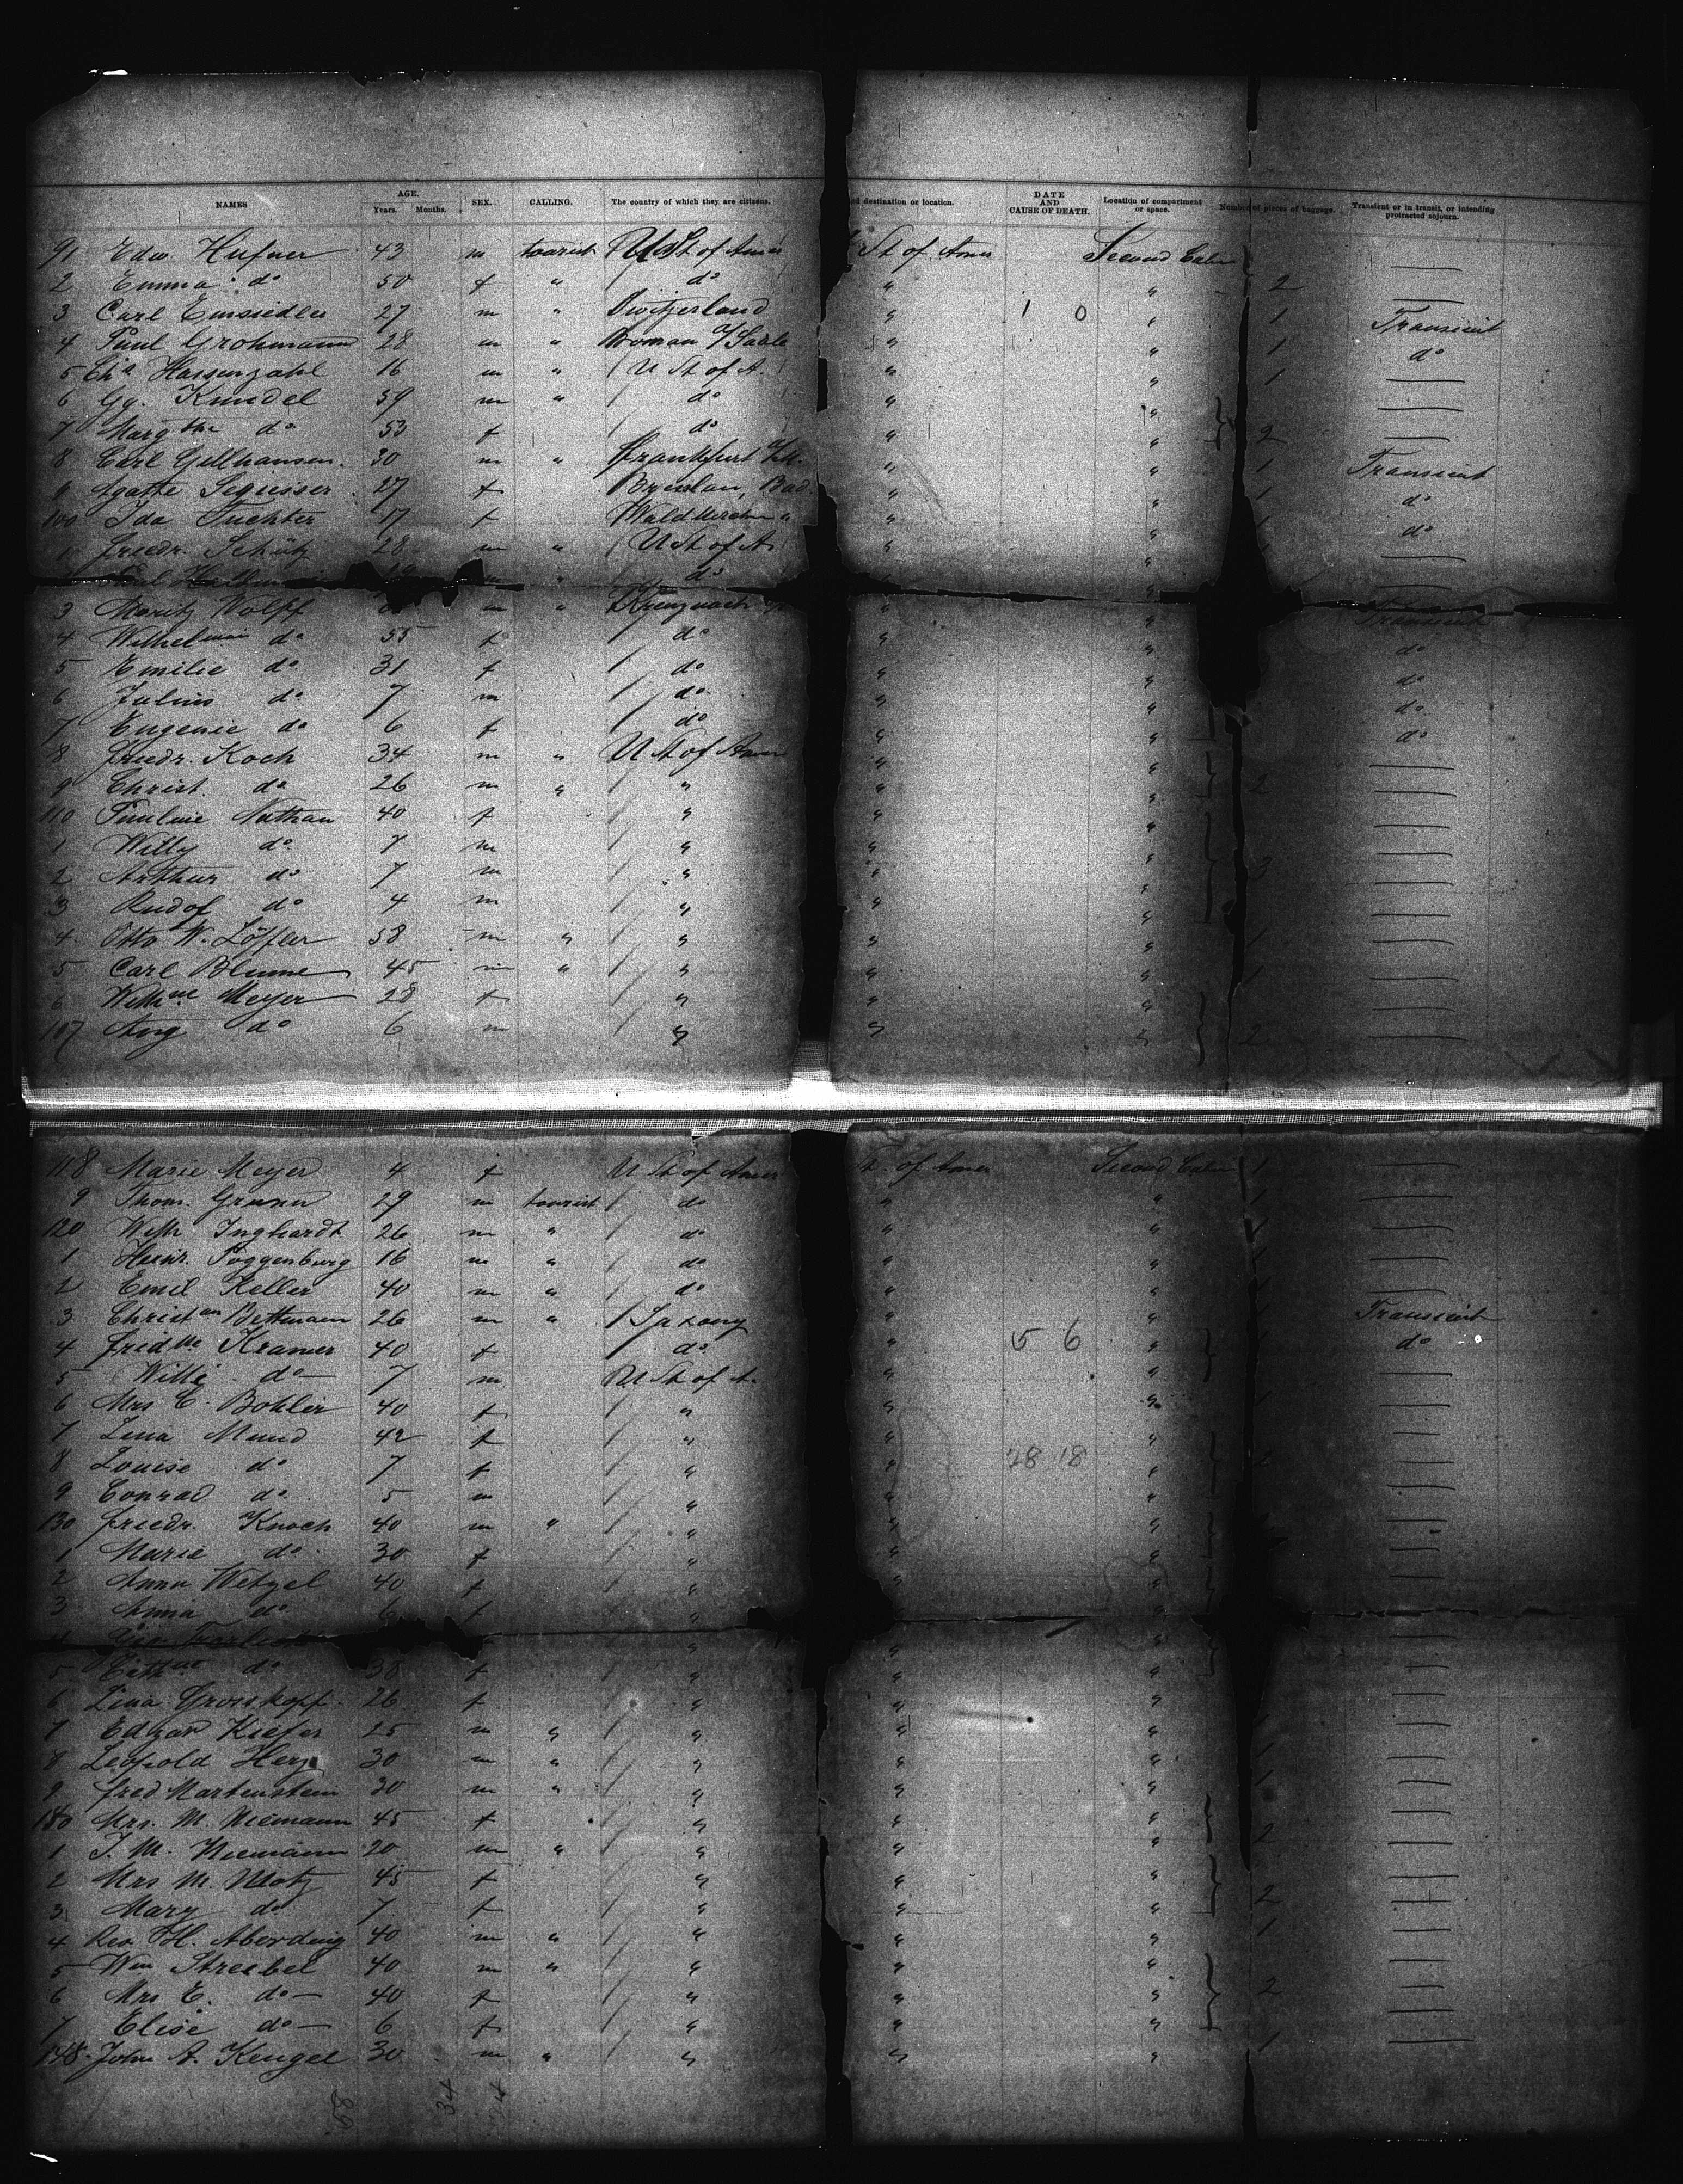 NAMES AGE. Years. Months. SEX. CALLING. The country of which they are citizens. destination or location. DATE AND CAUSE OF DEATH. Location of compartment or space. Number of pieces of baggage. Transient or in transit, or intending protracted sojourn.
91 Edw Hufner 43 m tourist U St of Amer St of Amer Second Cabin —
2 Emma do 50 f " do " " 2 —
3 Carl Einsiedler 27 m " Switzerland " 1 0 " 1 Transient
4 Paul Grohmann 28 m " " " 1 do
5 Hassenzahl 16 m " U St of A. " " 1 —
6 Gg. Kundel 59 m " do " " —
7 Margthe do 53 f do " " 2 —
8 Carl Gellhausen 30 m " Frankfurt " " 1 Transient
9 Agathe 27 f Bad. " " 1 do
100 Ida 17 f Waldkirchen " " " 1 do
1 Friedr. Schütz 28 m " U St of A " " —
m " do " "
3 Moritz Wolff m " Kreuznach " " Transient
4 Wilhelmin do 55 f do " " do
5 Emilie do 31 f do " " do
6 Julius do 7 m do " " do
7 Eugenie do 6 f do " " do
8 Friedr. Koch 34 m " U St of Amer " " —
9 Christ. do 26 m " " " " 2 —
110 Pauline Nathan 40 f " " " —
1 Willy do 7 m " " " —
2 Arthur do 7 m " " " 3 —
3 Rudof do 4 m " " " —
4 Otto W. Löffler 58 m " " " " 1 —
5 Carl Blume 45 m " " " " 1 —
6 Wilhme Meyer 28 f " " " —
107 Aug do 6 m " " " 2 —
118 Marie Meyer 4 f U St of Amer St. of Amer Second Cabin 1 —
9 Thom. 29 m tourist do " " 1 —
120 Wilh Inghardt 26 m " do " " —
1 Heinr. Poggenburg 16 m " do " " 1 —
2 Emil Keller 40 m " do " " —
3 Christan Bettmann 26 m " Saxony " " Transient
4 Fridke Kramer 40 f do " 5 6 " 1 do
5 Willi do 7 m U St of A. " " —
6 Mrs C. Bohler 40 f " " " 1 —
7 Lina Mund 42 f " " " —
8 Louise do 7 f " " 28 18 " 2 —
9 Conrad do 5 m " " " —
130 Friedr. Knoch 40 m " " " " —
1 Marie do 30 f " " " —
2 Anna Wetzel 40 f " " " —
3 Anna do 6 f " " " —
" " " —
5 Cathne do 38 f " " " —
6 Lina Grosskopf 26 f " " " —
7 Edgar Kiefer 25 m " " " " 1 —
8 Leopold Herz 30 m " " " " 1 —
9 Fred Martenstein 30 m " " " " 1 —
140 Mrs. M. Niemann 45 f " " " —
1 J. M. Niemann 20 m " " " " 2 —
2 Mrs M. Motz 45 f " " " —
3 Mary do 7 f " " " 2 —
4 Rev H. Aberding 40 m " " " " 1 —
5 Wm Streibel 40 m " " " " —
6 Mrs E. do — 40 f " " " 2 —
7 Elise do — 6 f " " " —
148 John A. Kengel 30 m " " " " 1 —
34 4